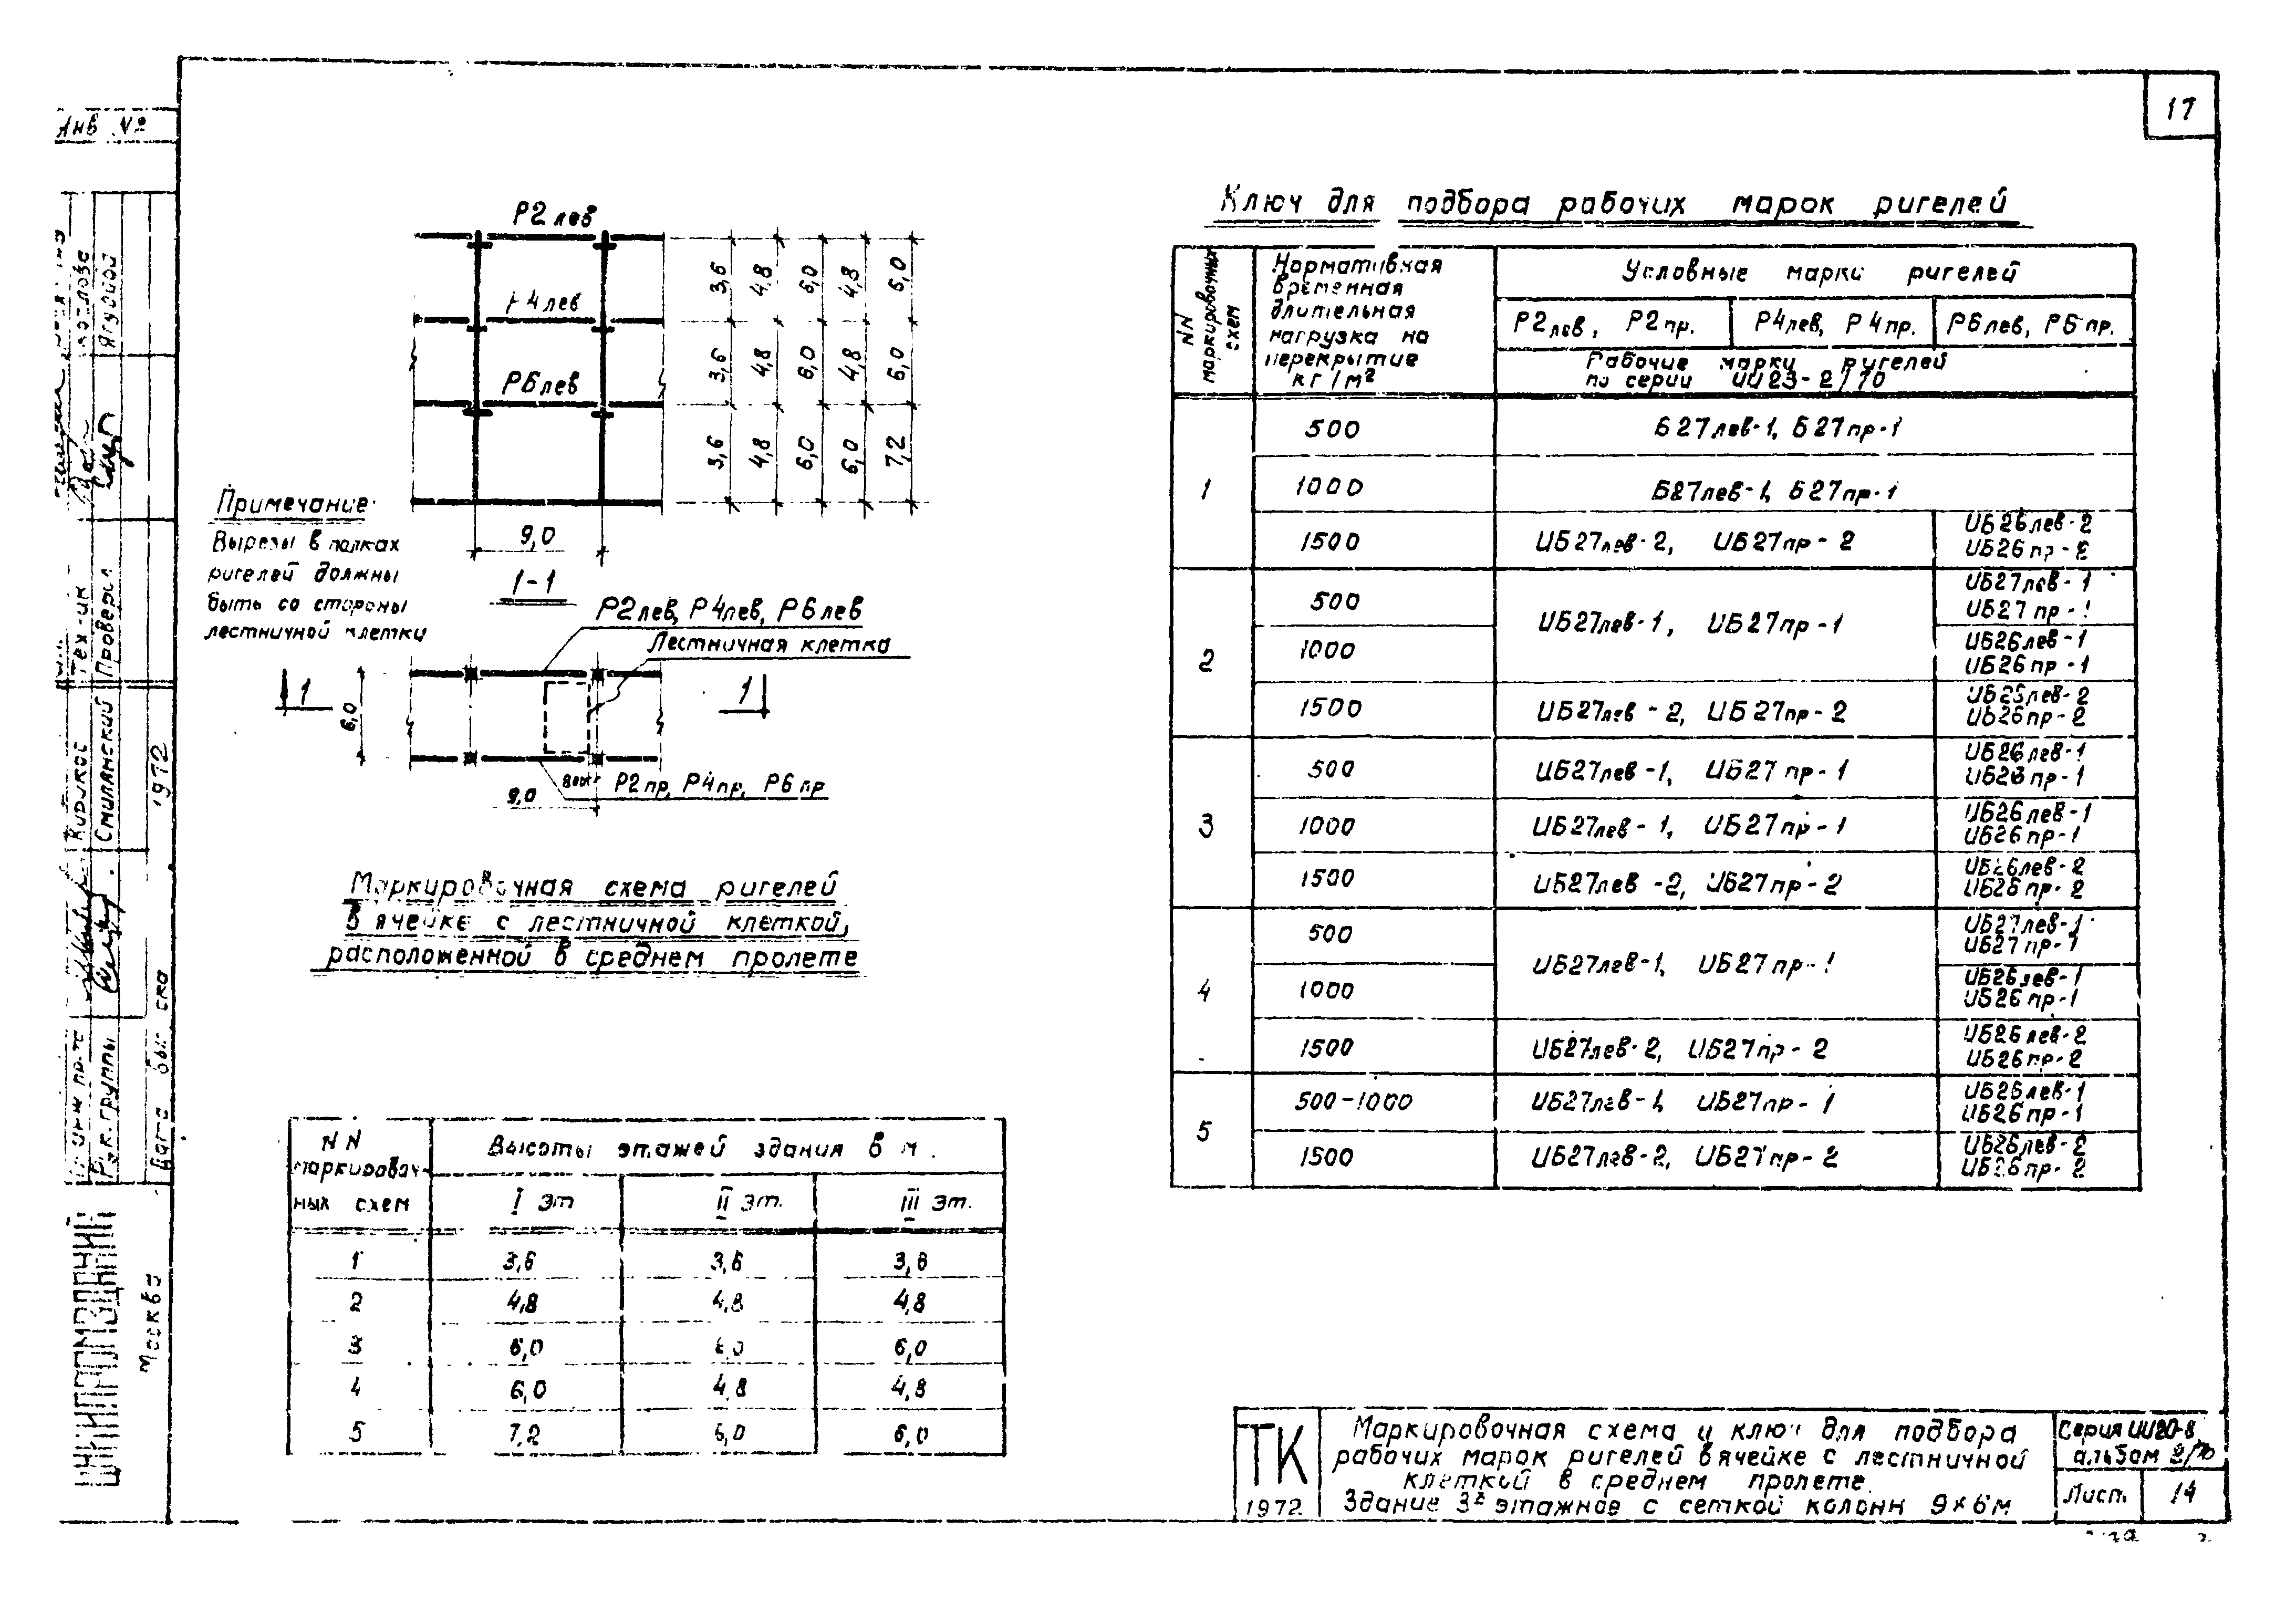 17
Инв №
Р2лев
Р4лев
Р6лев
3,6 4,8 6,0 4,8 6,0
3,6 4,8 6,0 4,8 6,0
3,6 4,8 6,0 6,0 7,2
9,0
1-1
Примечание:
Вырезы в полках
ригелей должны
быть со стороны
лестничной клетки
Р2лев, Р4лев, Р6лев
Лестничная клетка
1
1
6,0
9,0
Р2пр, Р4пр, Р6пр
Маркировочная схема ригелей
в ячейке с лестничной клеткой,
расположенной в среднем пролете
NN маркировочных схем
Высоты этажей здания в м.
I эт II эт. III эт.
1 3,6 3,6 3,6
2 4,8 4,8 4,8
3 6,0 6,0 6,0
4 6,0 4,8 4,8
5 7,2 6,0 6,0
Ключ для подбора рабочих марок ригелей
NN маркировочных схем
Нормативная
временная
длительная
нагрузка на
перекрытие
кг/м²
Условные марки ригелей
Р2лев, Р2пр. Р4лев, Р4пр. Р6лев, Р6пр.
Рабочие марки ригелей
по серии ИИ23-2/70
1
500 Б27лев-1, Б27пр-1
1000 Б27лев-1, Б27пр-1
1500 ИБ27лев-2, ИБ27пр-2
ИБ26лев-2
ИБ26пр-2
2
500
1000
ИБ27лев-1, ИБ27пр-1
ИБ27лев-1
ИБ27пр-1
ИБ26лев-1
ИБ26пр-1
1500 ИБ27лев-2, ИБ27пр-2
ИБ26лев-2
ИБ26пр-2
3
500 ИБ27лев-1, ИБ27пр-1
ИБ26лев-1
ИБ26пр-1
1000 ИБ27лев-1, ИБ27пр-1
ИБ26лев-1
ИБ26пр-1
1500 ИБ27лев-2, ИБ27пр-2
ИБ26лев-2
ИБ26пр-2
4
500
1000
ИБ27лев-1, ИБ27пр-1
ИБ27лев-1
ИБ27пр-1
ИБ26лев-1
ИБ26пр-1
1500 ИБ27лев-2, ИБ27пр-2
ИБ26лев-2
ИБ26пр-2
5
500-1000 ИБ27лев-1, ИБ27пр-1
ИБ26лев-1
ИБ26пр-1
1500 ИБ27лев-2, ИБ27пр-2
ИБ26лев-2
ИБ26пр-2
ТК
1972
Маркировочная схема и ключ для подбора
рабочих марок ригелей в ячейке с лестничной
клеткой в среднем пролете.
Здание 3х этажное с сеткой колонн 9×6м
Серия ИИ20-8
альбом 2/70
Лист 14
Козлова
Ягудаева
Тех-ик
Проверил
Смилянский
1972
Рук. группы
Дата
ЦНИИПРОМЗДАНИЙ
Москва